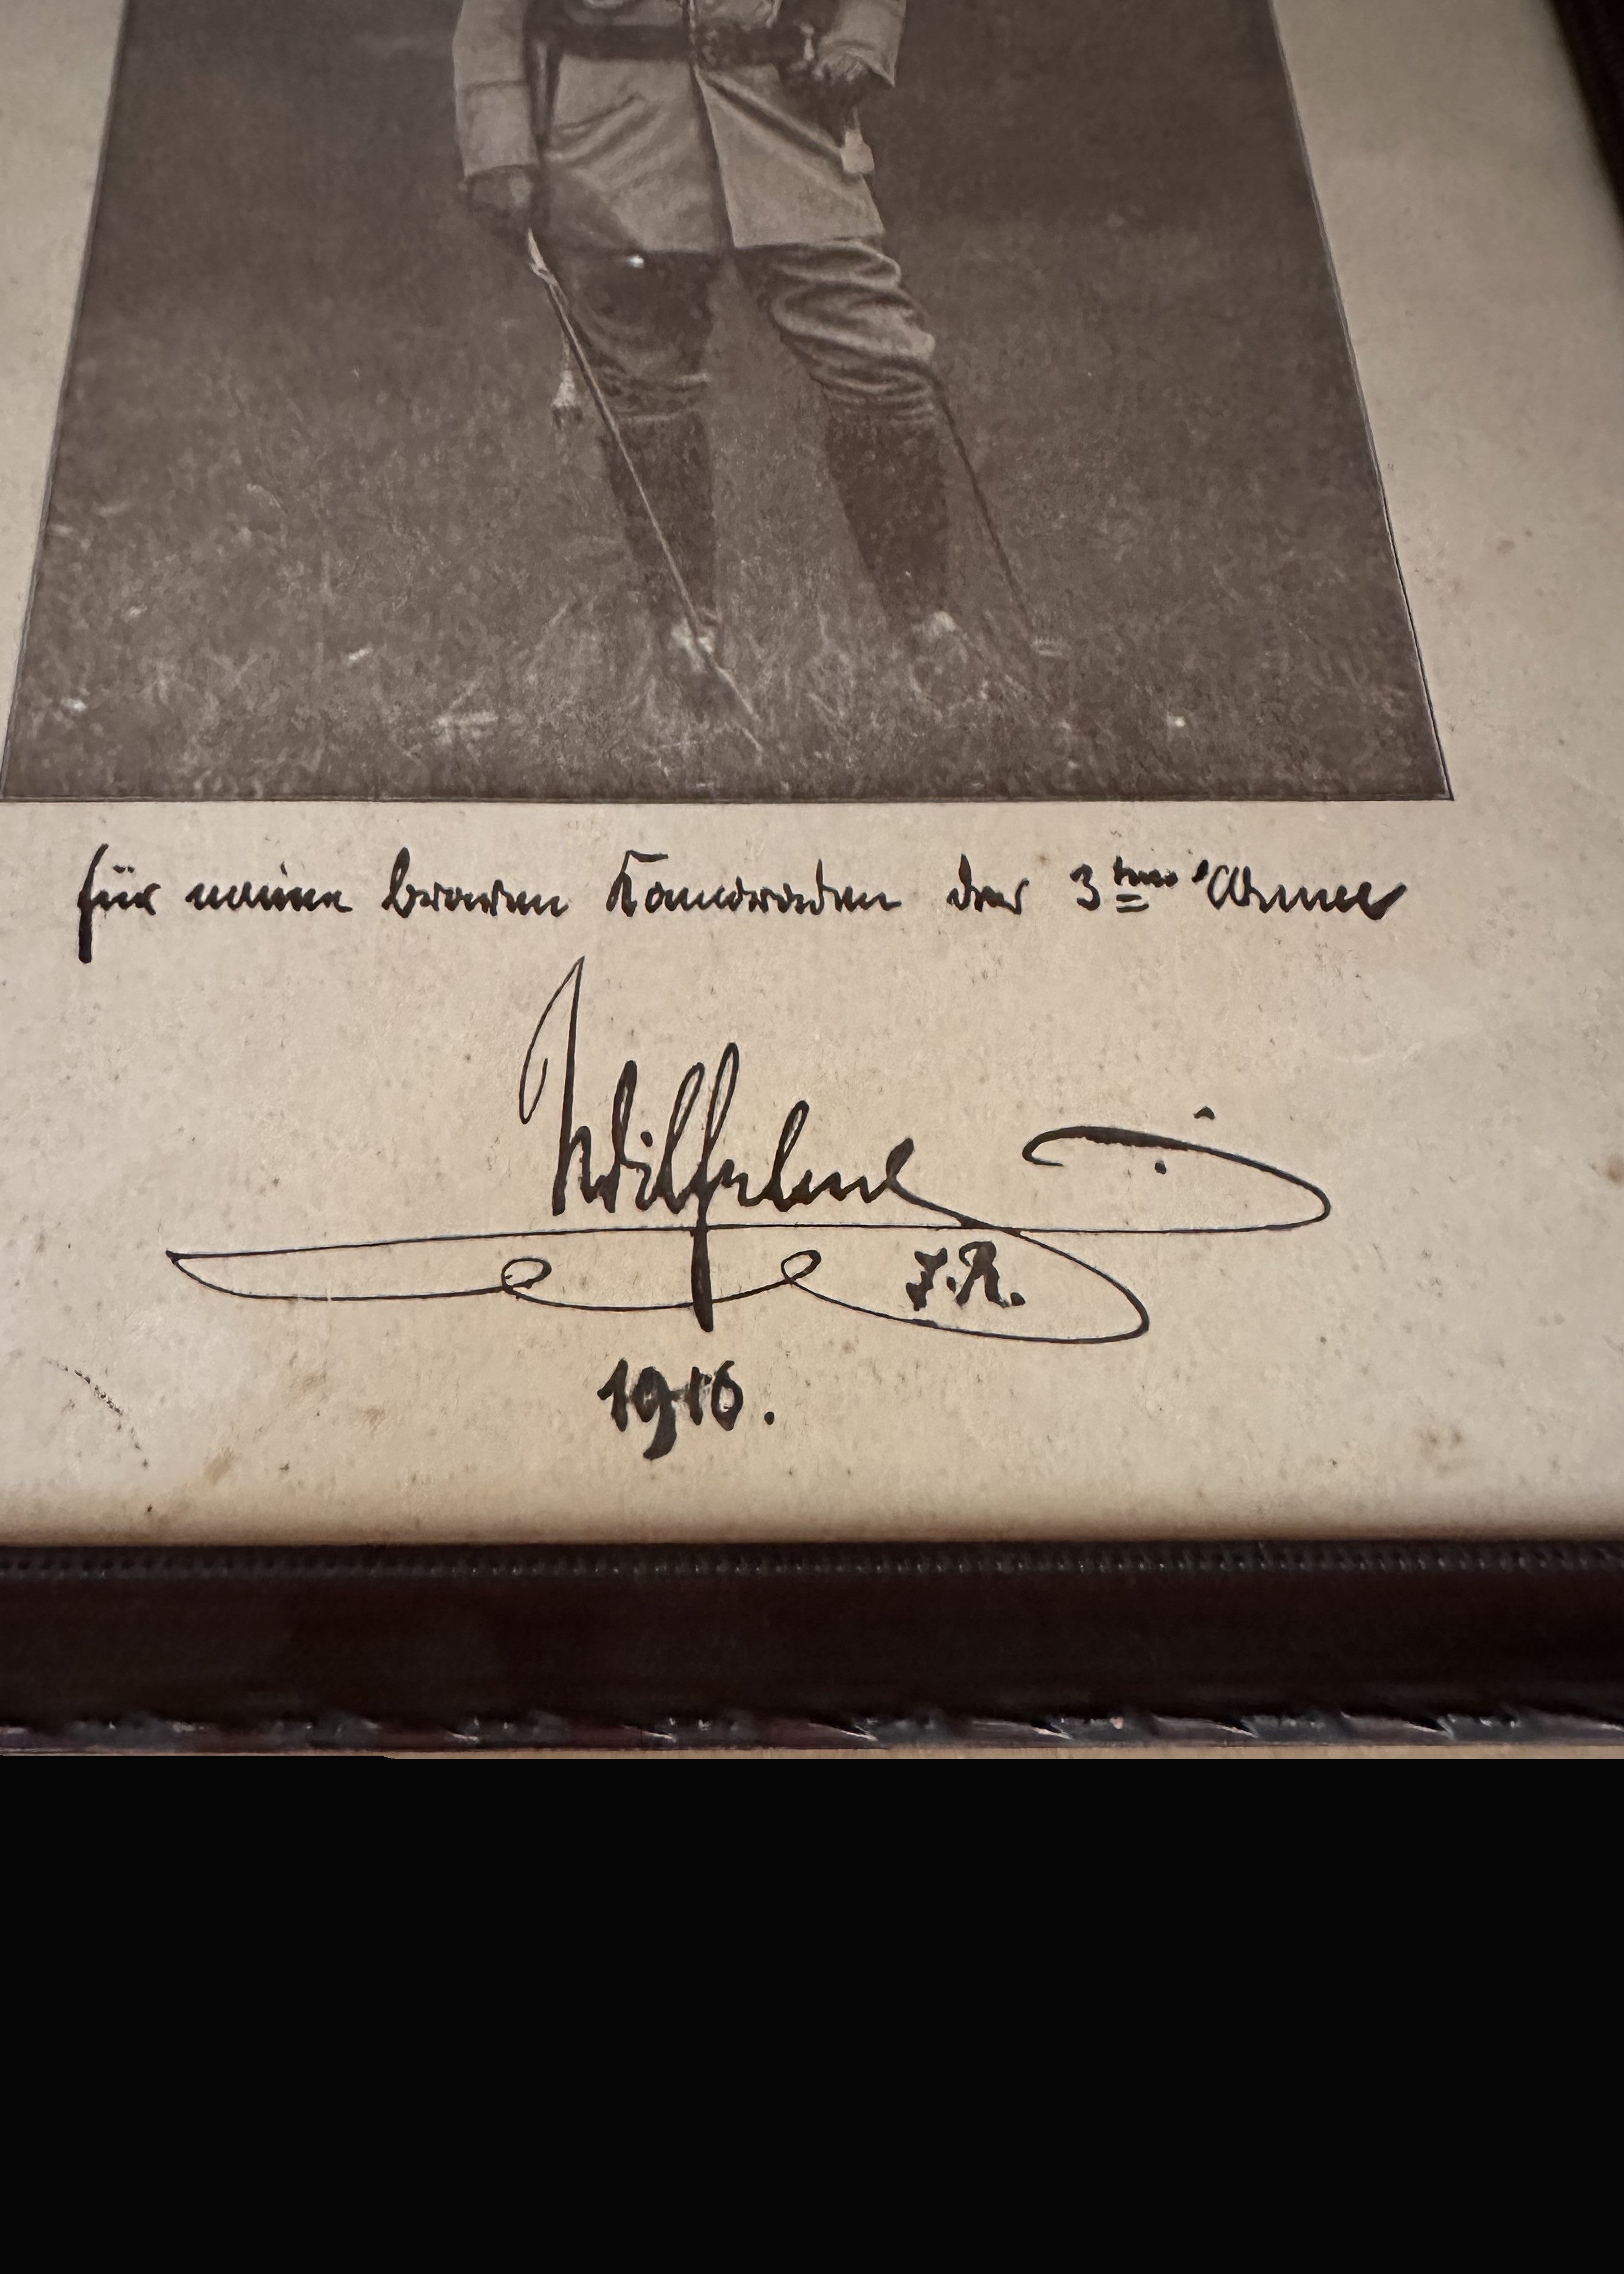 für meine braven Kameraden der 3ten Armee
Wilhelm
I.R.
1916.